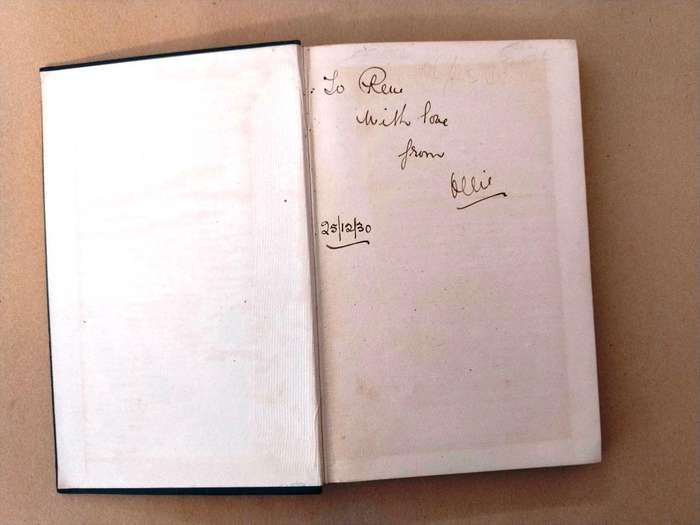 To Rene
With love
from
Ollie
25/12/30